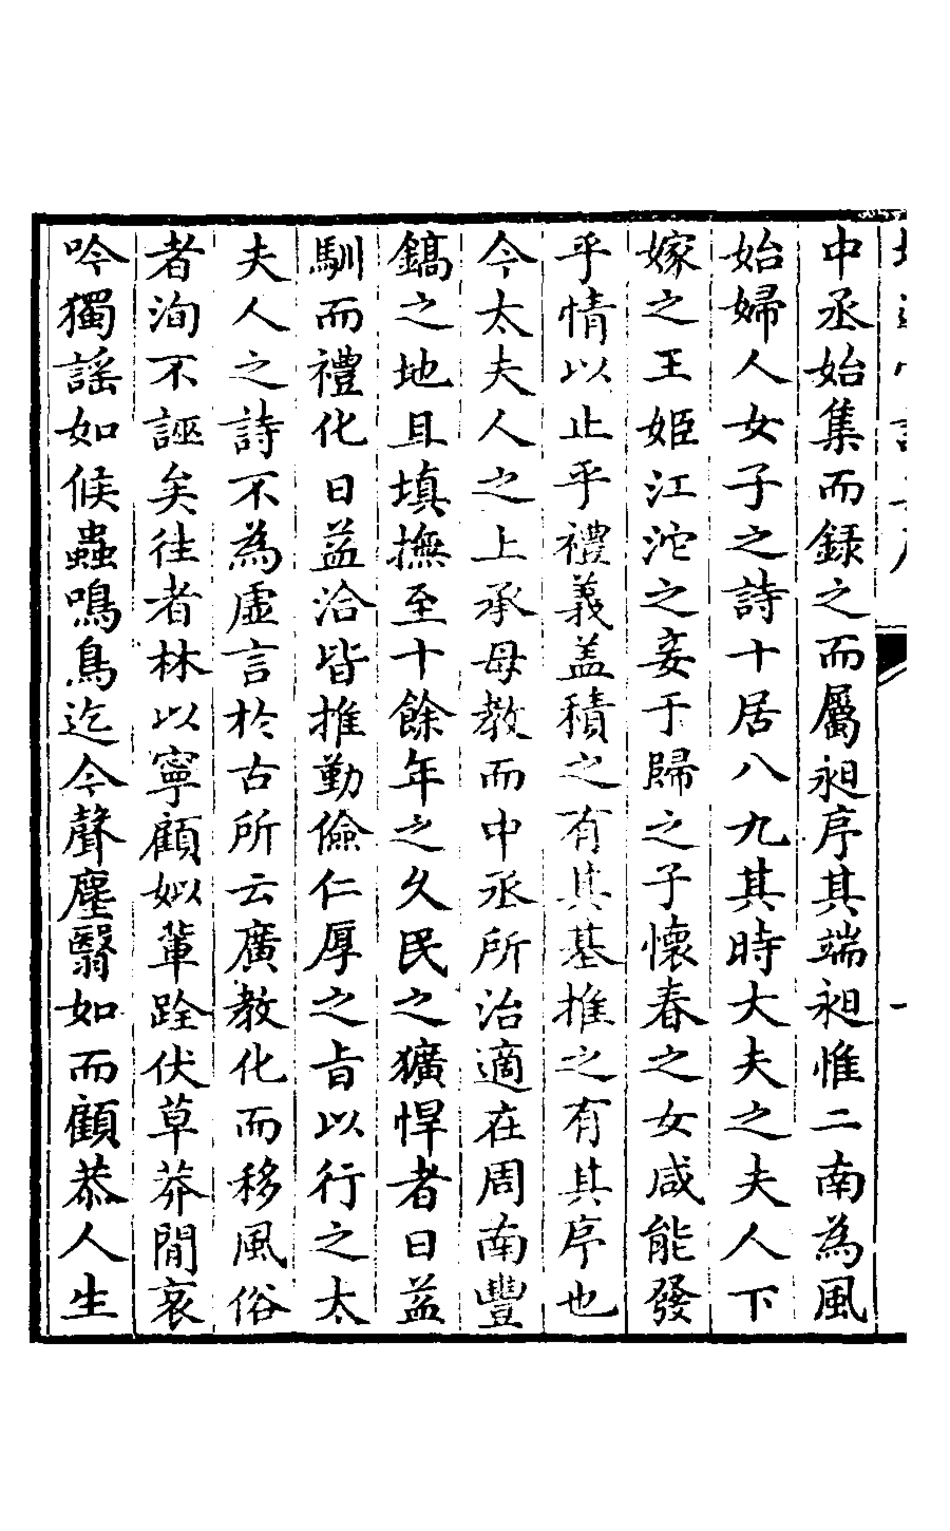 中丞始集而録之而屬昶序其端昶惟二南為風
始婦人女子之詩十居八九其時大夫之夫人下
嫁之王姬江沱之妾于歸之子懷春之女咸能發
乎情以止乎禮義盖積之有其基推之有其序也
今太夫人之上承母教而中丞所治適在周南豐
鎬之地且填撫至十餘年之久民之獷悍者日益
馴而禮化日益洽皆推勤儉仁厚之旨以行之太
夫人之詩不為虛言於古所云廣教化而移風俗
者洵不誣矣往者林以寧顧姒輩跧伏草莽閒哀
吟獨謠如候蟲鳴鳥迄今聲塵翳如而顧恭人生